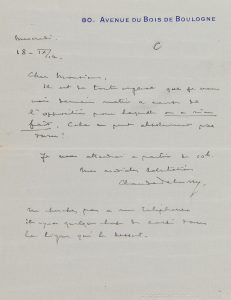 80. AVENUE DU BOIS DE BOULOGNE
Mercredi
18 -
C
Cher Monsieur,
Il est de toute urgence que je vous
vois demain matin à cause de
l'opposition pour laquelle on a rien
fait. Cela ne peut absolument pas
durer!
Je vous attendrai à partir de 10h.
Mes cordiales salutations
Claude Debussy
Ne cherchez pas à me téléphoner
il y a quelque chose de cassé dans
la ligne qui la dessert.